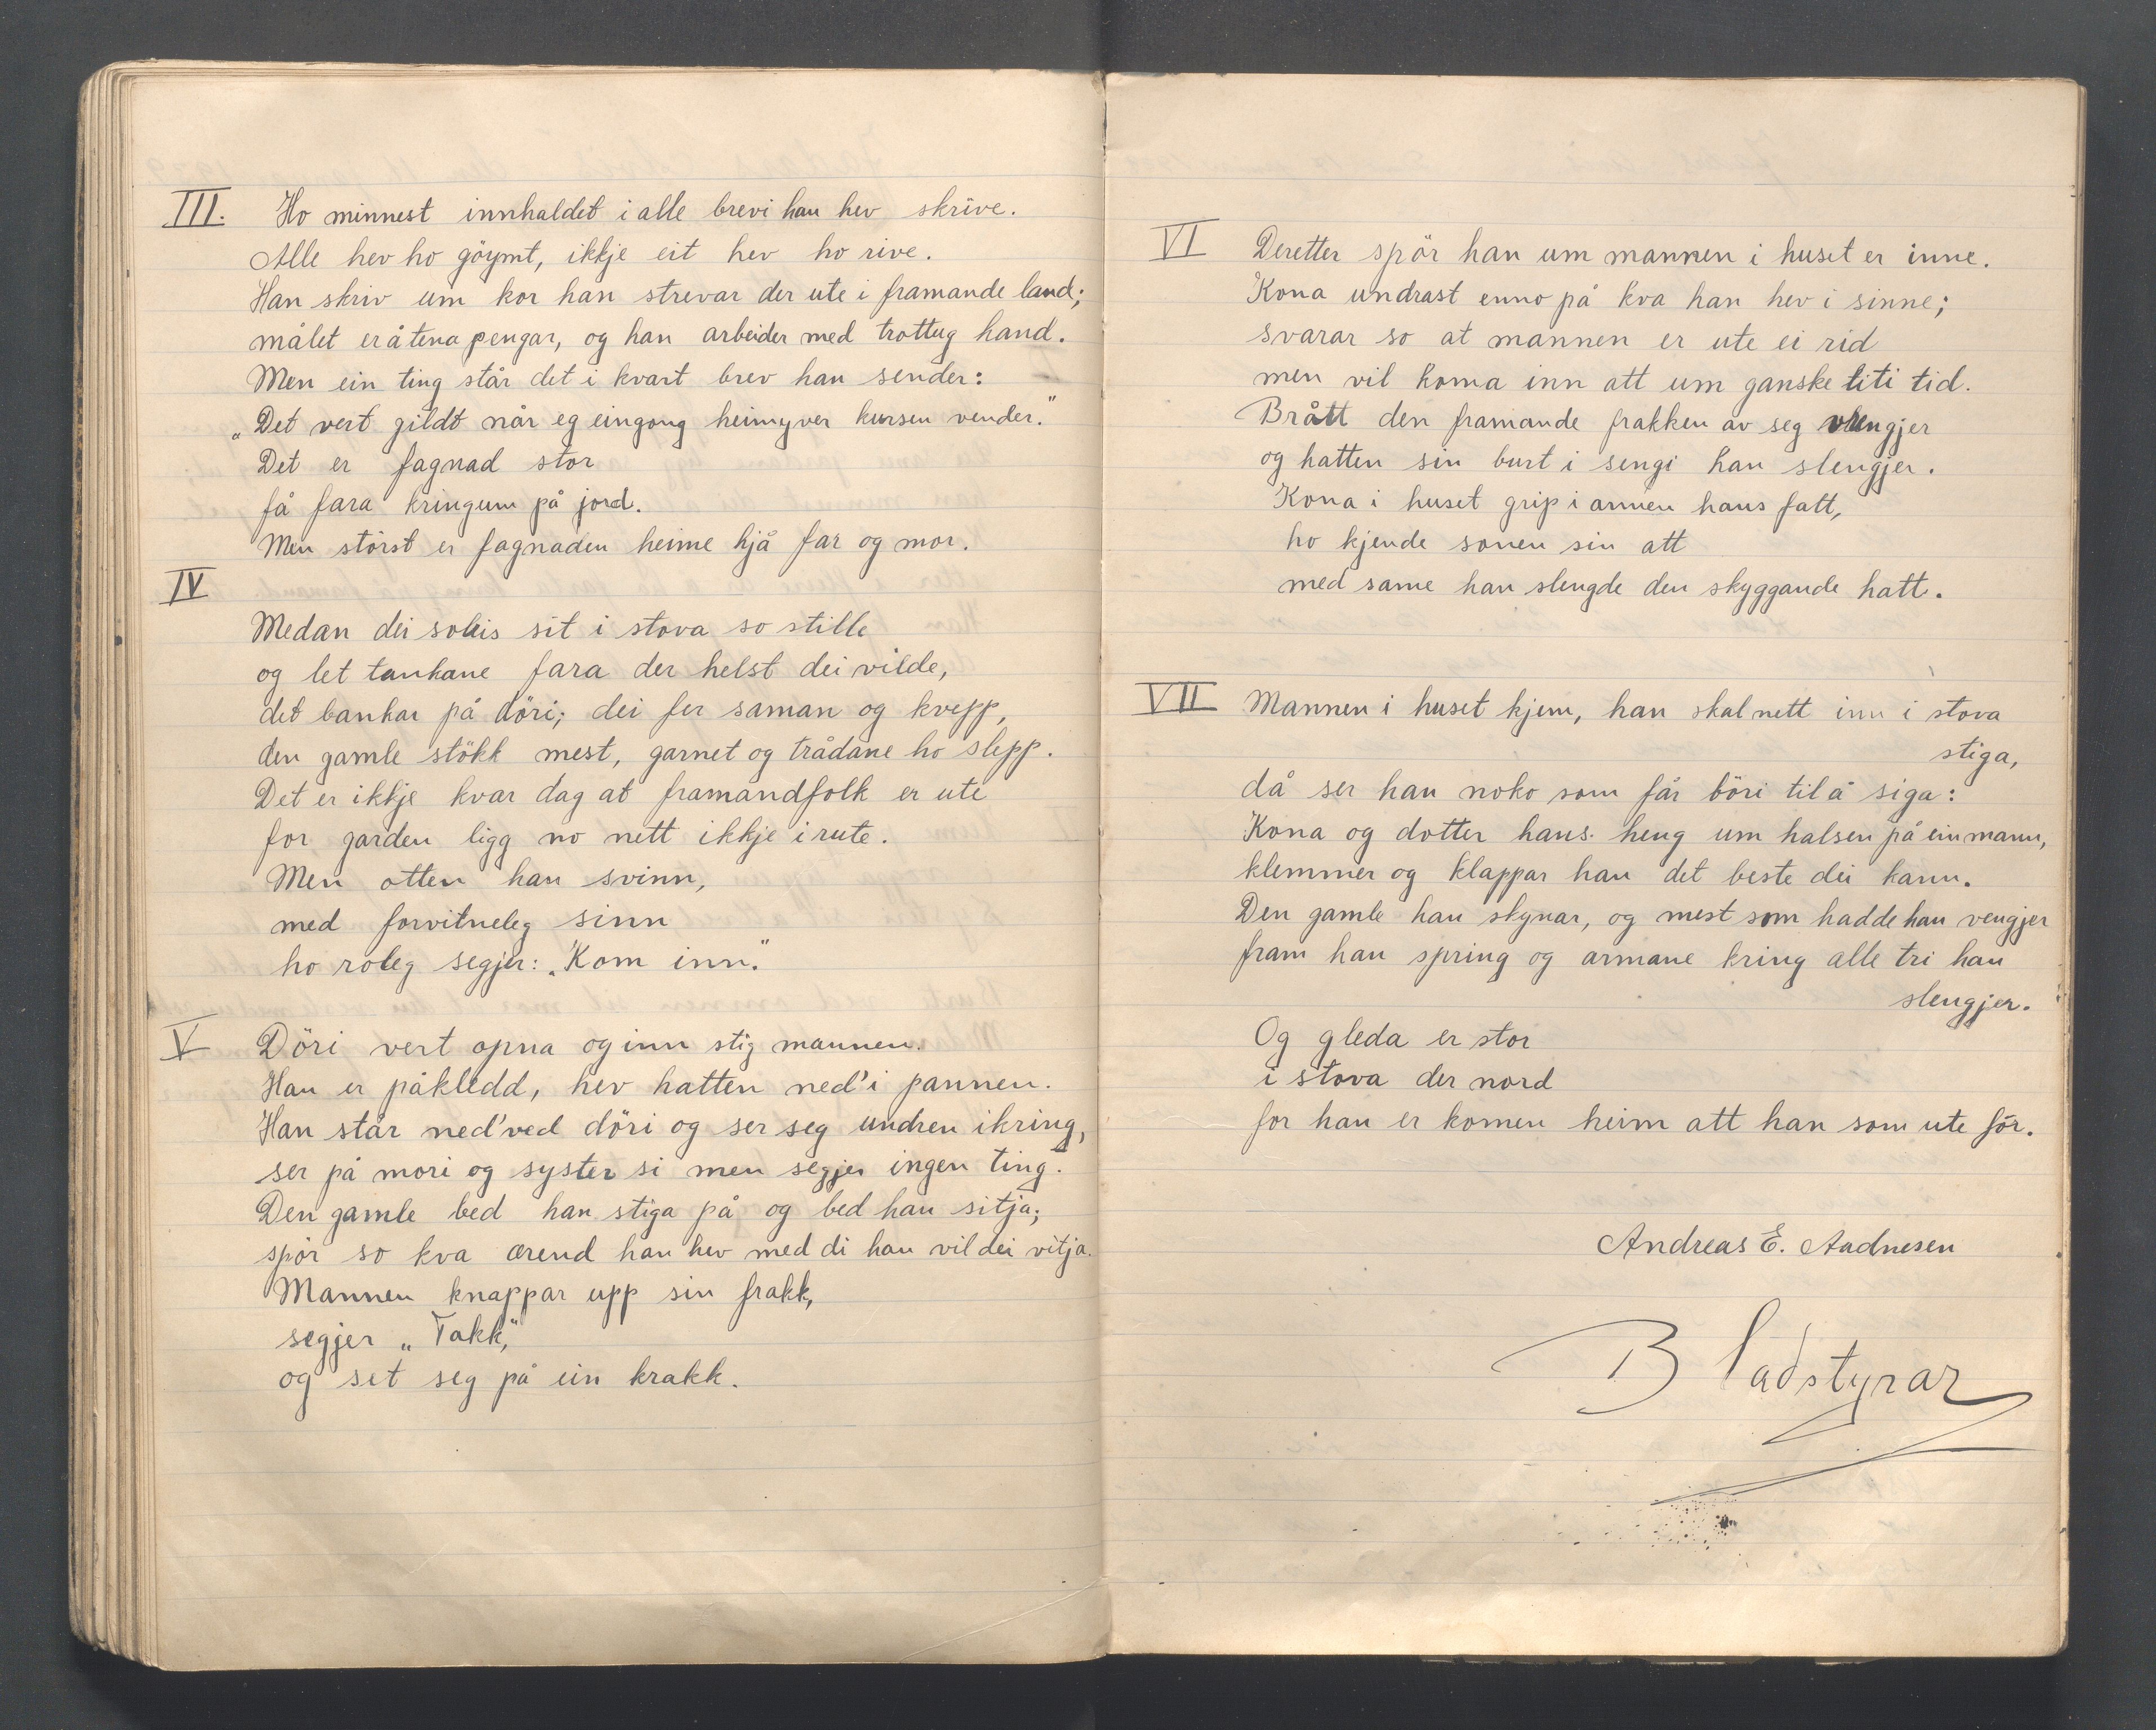 III. Ho minnest innhaldet i alle brevi han hev skrive.
Alle hev ho göymt, ikkje eit hev ho rive.
Han skriv um kor han strevar der ute i framande land;
målet er å tena pengar, og han arbeider med trottug hand.
Men ein ting står det i kvart brev han sender:
„Det vert gildt når eg eingong heimyver kursen vender."
Det er fagnad stor
få fara kringum på jord.
Men störst er fagnaden heime hjå far og mor.
IV
Medan dei soleis sit i stova so stille
og let tankane fara der helst dei vilde,
det bankar på döri; dei fer saman og kvepp,
den gamle stökk mest, garnet og trådane ho slepp.
Det er ikkje kvar dag at framandfolk er ute
for garden ligg no nett ikkje i rute.
Men otten han svinn,
med forvitneleg sinn
ho roleg segjer: „Kom inn."
V Döri vert opna og inn stig mannen.
Han er påkledd, hev hatten ned'i pannen.
Han står ned'ved döri og ser seg undren ikring,
ser på mori og syster si men segjer ingen ting.
Den gamle bed han stiga på og bed han sitja;
spör so kva ærend han hev med di han vil dei vitja.
Mannen knappar upp sin frakk,
segjer „Takk",
og set seg på ein krakk.
VI Deretter spör han um mannen i huset er inne.
Kona undrast enno på kva han hev i sinne;
svarar so at mannen er ute ei rid
men vil koma inn att um ganske liti tid.
Brått den framande frakken av seg vrengjer
og hatten sin burt i sengi han slengjer.
Kona i huset grip i armen hans fatt,
ho kjende sonen sin att
med same han slengde den skyggande hatt.
VII Mannen i huset kjem, han skal nett inn i stova
stiga,
då ser han noko som får böri til å siga:
Kona og dotter hans heng um halsen på ein mann,
klemmer og klappar han det beste dei kann.
Den gamle han skynar, og mest som hadde han vengjer
fram han spring og armane kring alle tri han
slengjer.
Og gleda er stor
i stova der nord
for han er komen heim att han som ute fór.
Andreas E. Aadnesen
Bladstyrar